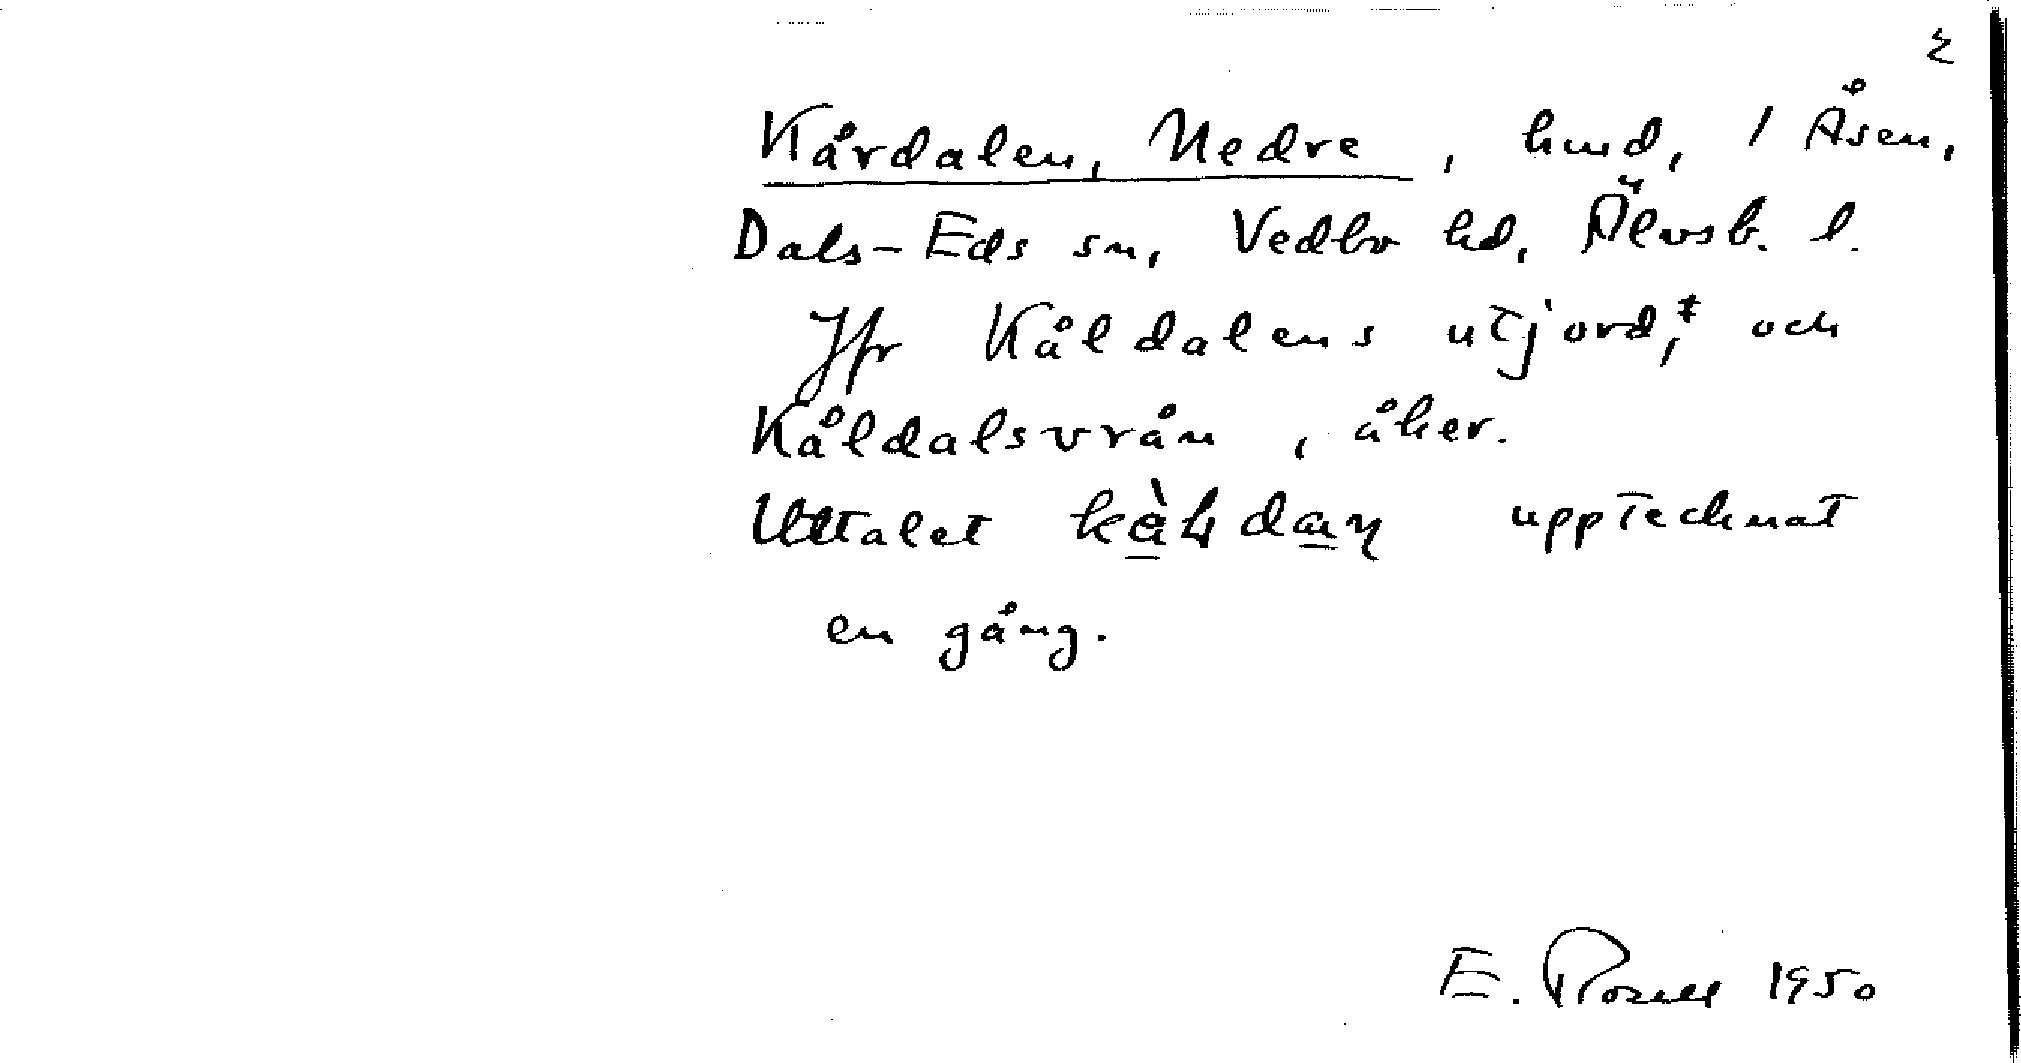 2
Kårdalen, Nedre, hmd, 1 Åsen,
Dals-Eds sn, Vedbo hd, Älvsb. l.
Jfr Kåldalens utjord,‡ och
Kåldalsvrån, åker.
Uttalet upptecknat
en gång.
E. Rosell 1950